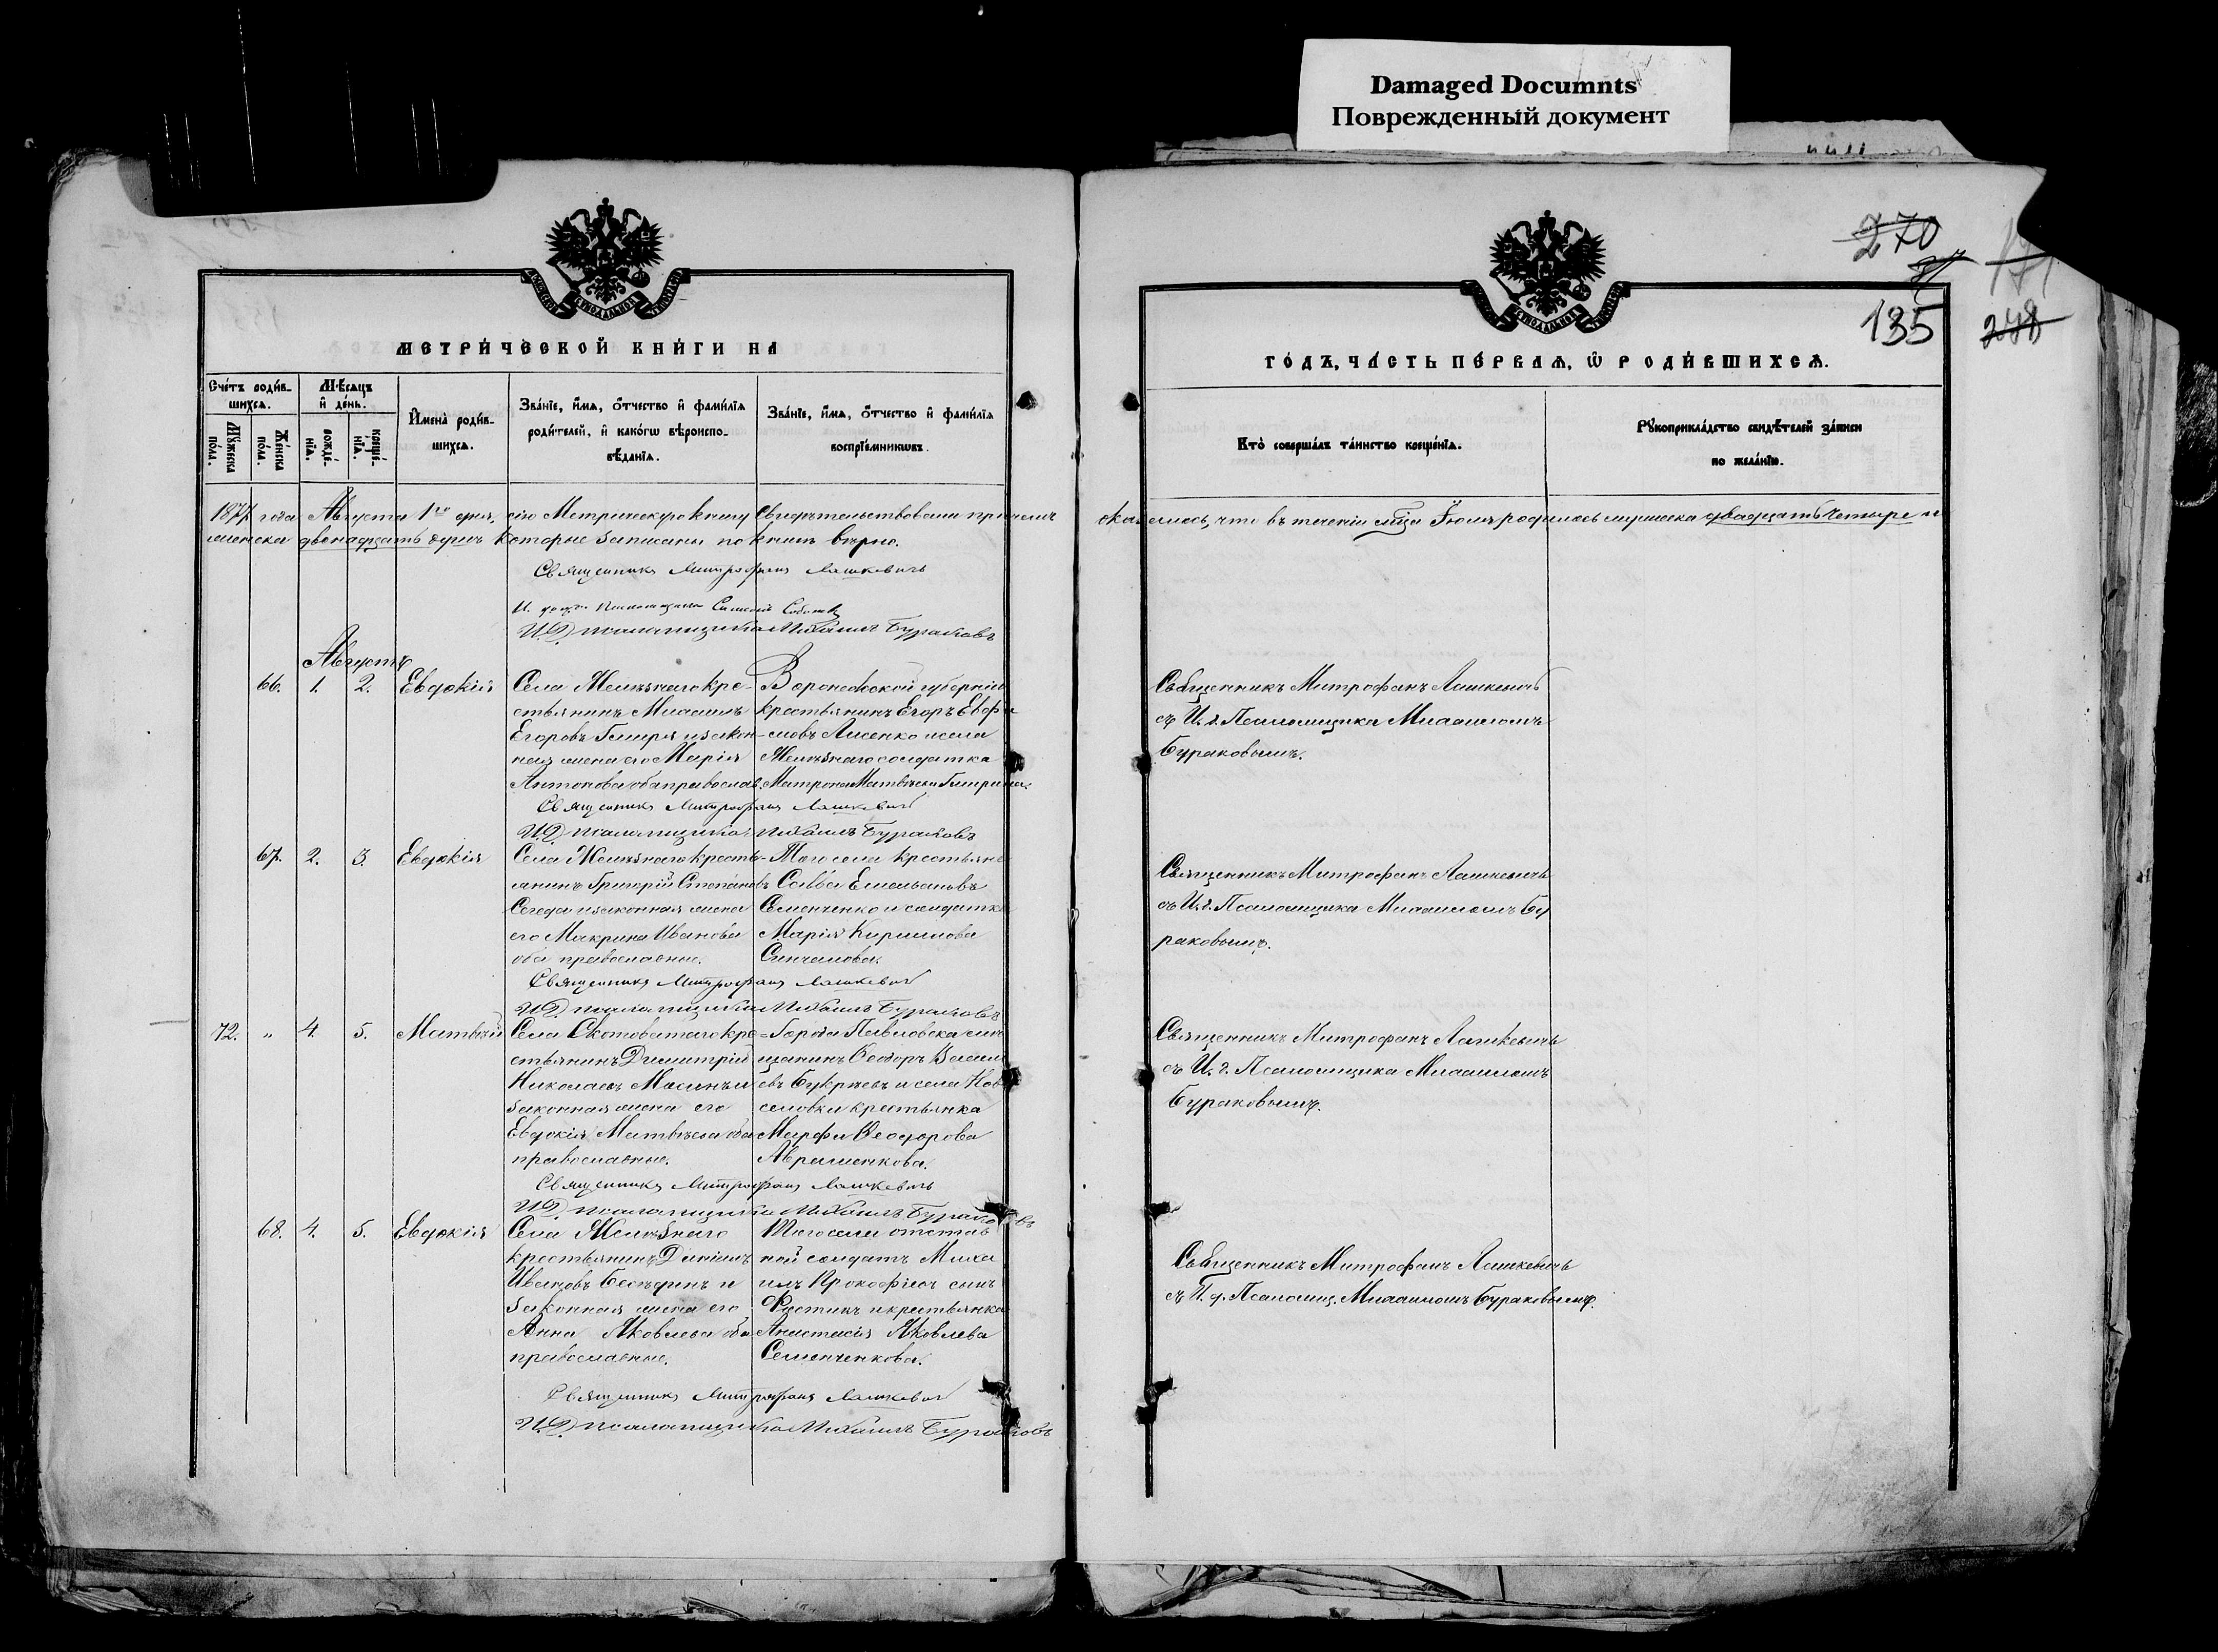 Damaged Documnts
Поврежденный документ
270
135
248
МЕТРИ́ЧЕСКОЙ КНИ́ГИ НА
ГО́ДЪ, ЧА́СТЬ ПЕ́РВАѦ, Ѽ РОДИ́ВШИХСѦ.
Сче́тъ роди́в-
шихсѧ.
Мѣ́сѧцъ
и҆ де́нь.
Мꙋ́жеска
по́ла.
Же́нска
по́ла.
рожде́-
нїѧ.
креще́-
нїѧ.
И҆мена̀ роди́в-
шихсѧ.
Зва́нїе, и҆́мѧ, ѻ҆́тчество и҆ фами́лїѧ
роди́телей, и҆ како́гѡ вѣроиспо-
вѣ́данїѧ.
Зва́нїе, и҆́мѧ, ѻ҆́тчество и҆ фами́лїѧ
воспрїе́мникѡвъ.
Кто̀ соверша́лъ та́инство креще́нїѧ.
Рꙋкоприкла́дство свидѣ́телей за́писи
по жела́нїю.
1877 года Августа 1го дня, сію Метрическую книгу Свидѣтельствовали причемъ оказалось, что въ теченіи мѣца Іюля родилось мужеска двадцать четыре и
женска двенадцать душъ которые записаны по книгѣ вѣрно.
Священникъ Митрофанъ Лашкевичъ
И. долж. Псаломщика
И.Д. псаломщика Михаилъ Бураковъ
Августъ
66. 1. 2. Евдокія
Села Желѣзнаго кре-
стьянинъ Михаилъ
Егоровъ Гмиря и закон-
ная жена его Марія
Антонова оба православ.
Воронежской губерніи
крестьянинъ Егоръ Евфи
мовъ Лисенко и села
Желѣзнаго солдатка
Матрона Матвѣева Гмирина.
Священникъ Митрофанъ Лашкевичъ
съ И. д. Псаломщика Михаиломъ
Бураковымъ.
Священникъ Митрофанъ Лашкевичъ
И.Д. псаломщика Михаилъ Бураковъ
67. 2. 3. Евдокія
Села Желѣзнаго кресть-
янинъ Григорій Степановъ
Сегеда и законная жена
его Макрина Иванова
оба православные.
Того села крестьяни
Савва Емельяновъ
Семенченко и солдатка
Марія Кирилова
Священникъ Митрофанъ Лашкевичъ
съ И. д. Псаломщика Михаиломъ Бу
раковымъ.
Священникъ Митрофанъ Лашкевичъ
И.Д. псаломщика Михаилъ Бураковъ
72. „ 4. 5. Матвѣй
Села Скотоватаго кре=
стьянинъ Димитрій
Николаевъ и
законная жена его
Евдокія Матвѣева оба
православные.
Города Павловска мѣ
щанинъ Ѳеодоръ
евъ Букрѣевъ и села Нов
селовки крестьянка
Марфа Ѳеодорова
Авраменкова.
Священникъ Митрофанъ Лашкевичъ
съ И. д. Псаломщика Михаиломъ
Бураковымъ.
Священникъ Митрофанъ Лашкевичъ
И.Д. псаломщика Михаилъ Бураковъ
68. 4. 5. Евдокія
Села Желѣзнаго
крестьянинъ Даніилъ
Ивановъ Бесѣдинъ и
законная жена его
Анна Яковлева оба
православные.
Того села отстав
ной солдатъ Миха
илъ Прокофіевъ сынъ
и крестьянка
Анастасія Яковлева
Семенченкова.
Священникъ Митрофанъ Лашкевичъ
съ И. д. Псаломщ. Михаиломъ Бураковымъ.
Священникъ Митрофанъ Лашкевичъ
И.Д. псаломщика Михаилъ Бураковъ